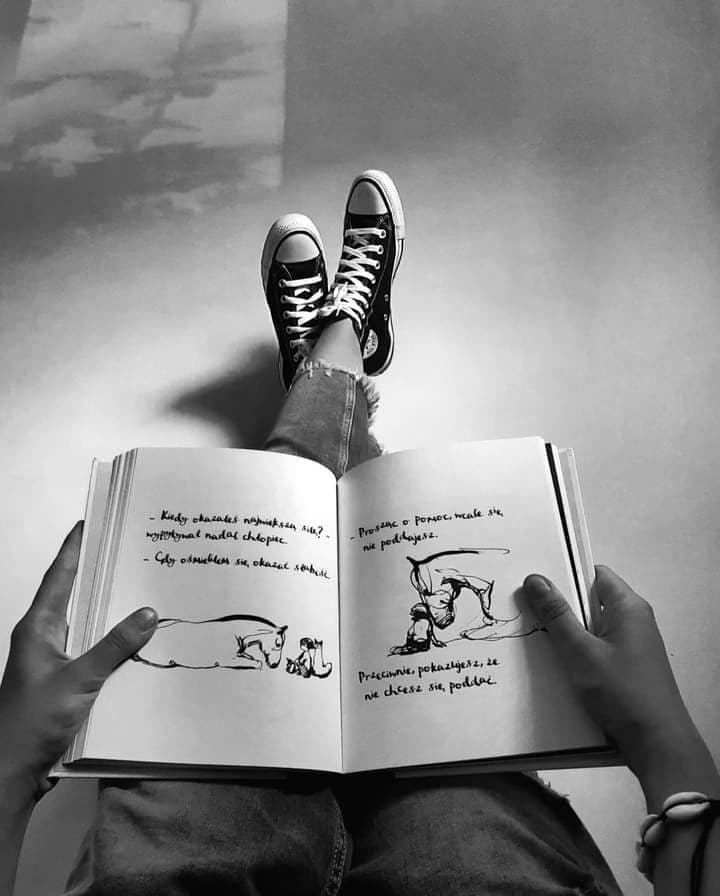 - Kiedy okazałeś największą siłę? -
wypytywał nadal chłopiec.
- Gdy ośmieliłem się okazać słabość.
- Prosząc o pomoc, wcale się
nie poddajesz.
Przeciwnie, pokazujesz, że
nie chcesz się poddać.